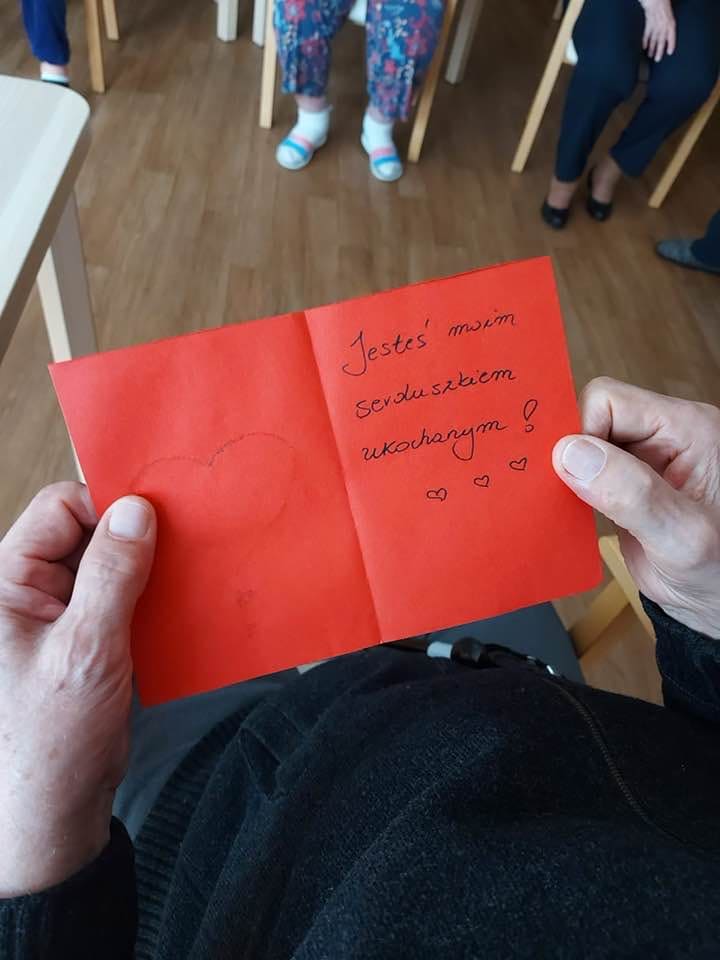 Jesteś moim
serduszkiem
ukochanym!
♡ ♡ ♡